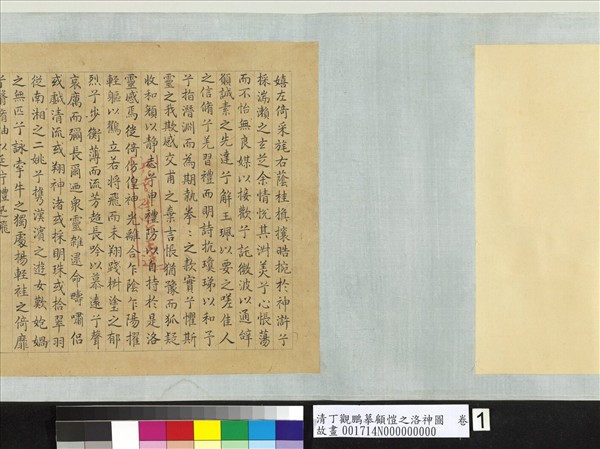 嬉左倚采旄右蔭桂旗攘皓捥於神滸兮
採湍瀨之玄芝余情悅其淑美兮心悵蕩
而不怡無良媒以接歡兮託微波以通辭
願誠素之先達兮解玉珮以要之嗟佳人
之信脩兮羌習禮而明詩抗瓊珶以和予
兮指潛淵而為期執拳〻之款實兮懼斯
靈之我欺感交甫之棄言悵猶豫而狐疑
收和顏以静志兮申禮防以自持於是洛
靈感焉徙倚傍偟神光離合乍陰乍陽擢
輕軀以鶴立若將飛而未翔踐椒塗之郁
烈兮步衡薄而流芳超長吟以慕遠兮聲
哀厲而彌長爾迺眾靈雜遝命疇嘯侶
或戲清流或翔神渚或採明珠或拾翠羽
從南湘之二姚兮攜漢濱之遊女歎匏媧
之無匹兮詠牽牛之獨處揚輕袿之倚靡
清丁觀鵬摹顧愷之洛神圖 卷 1
故畫 001714N000000000